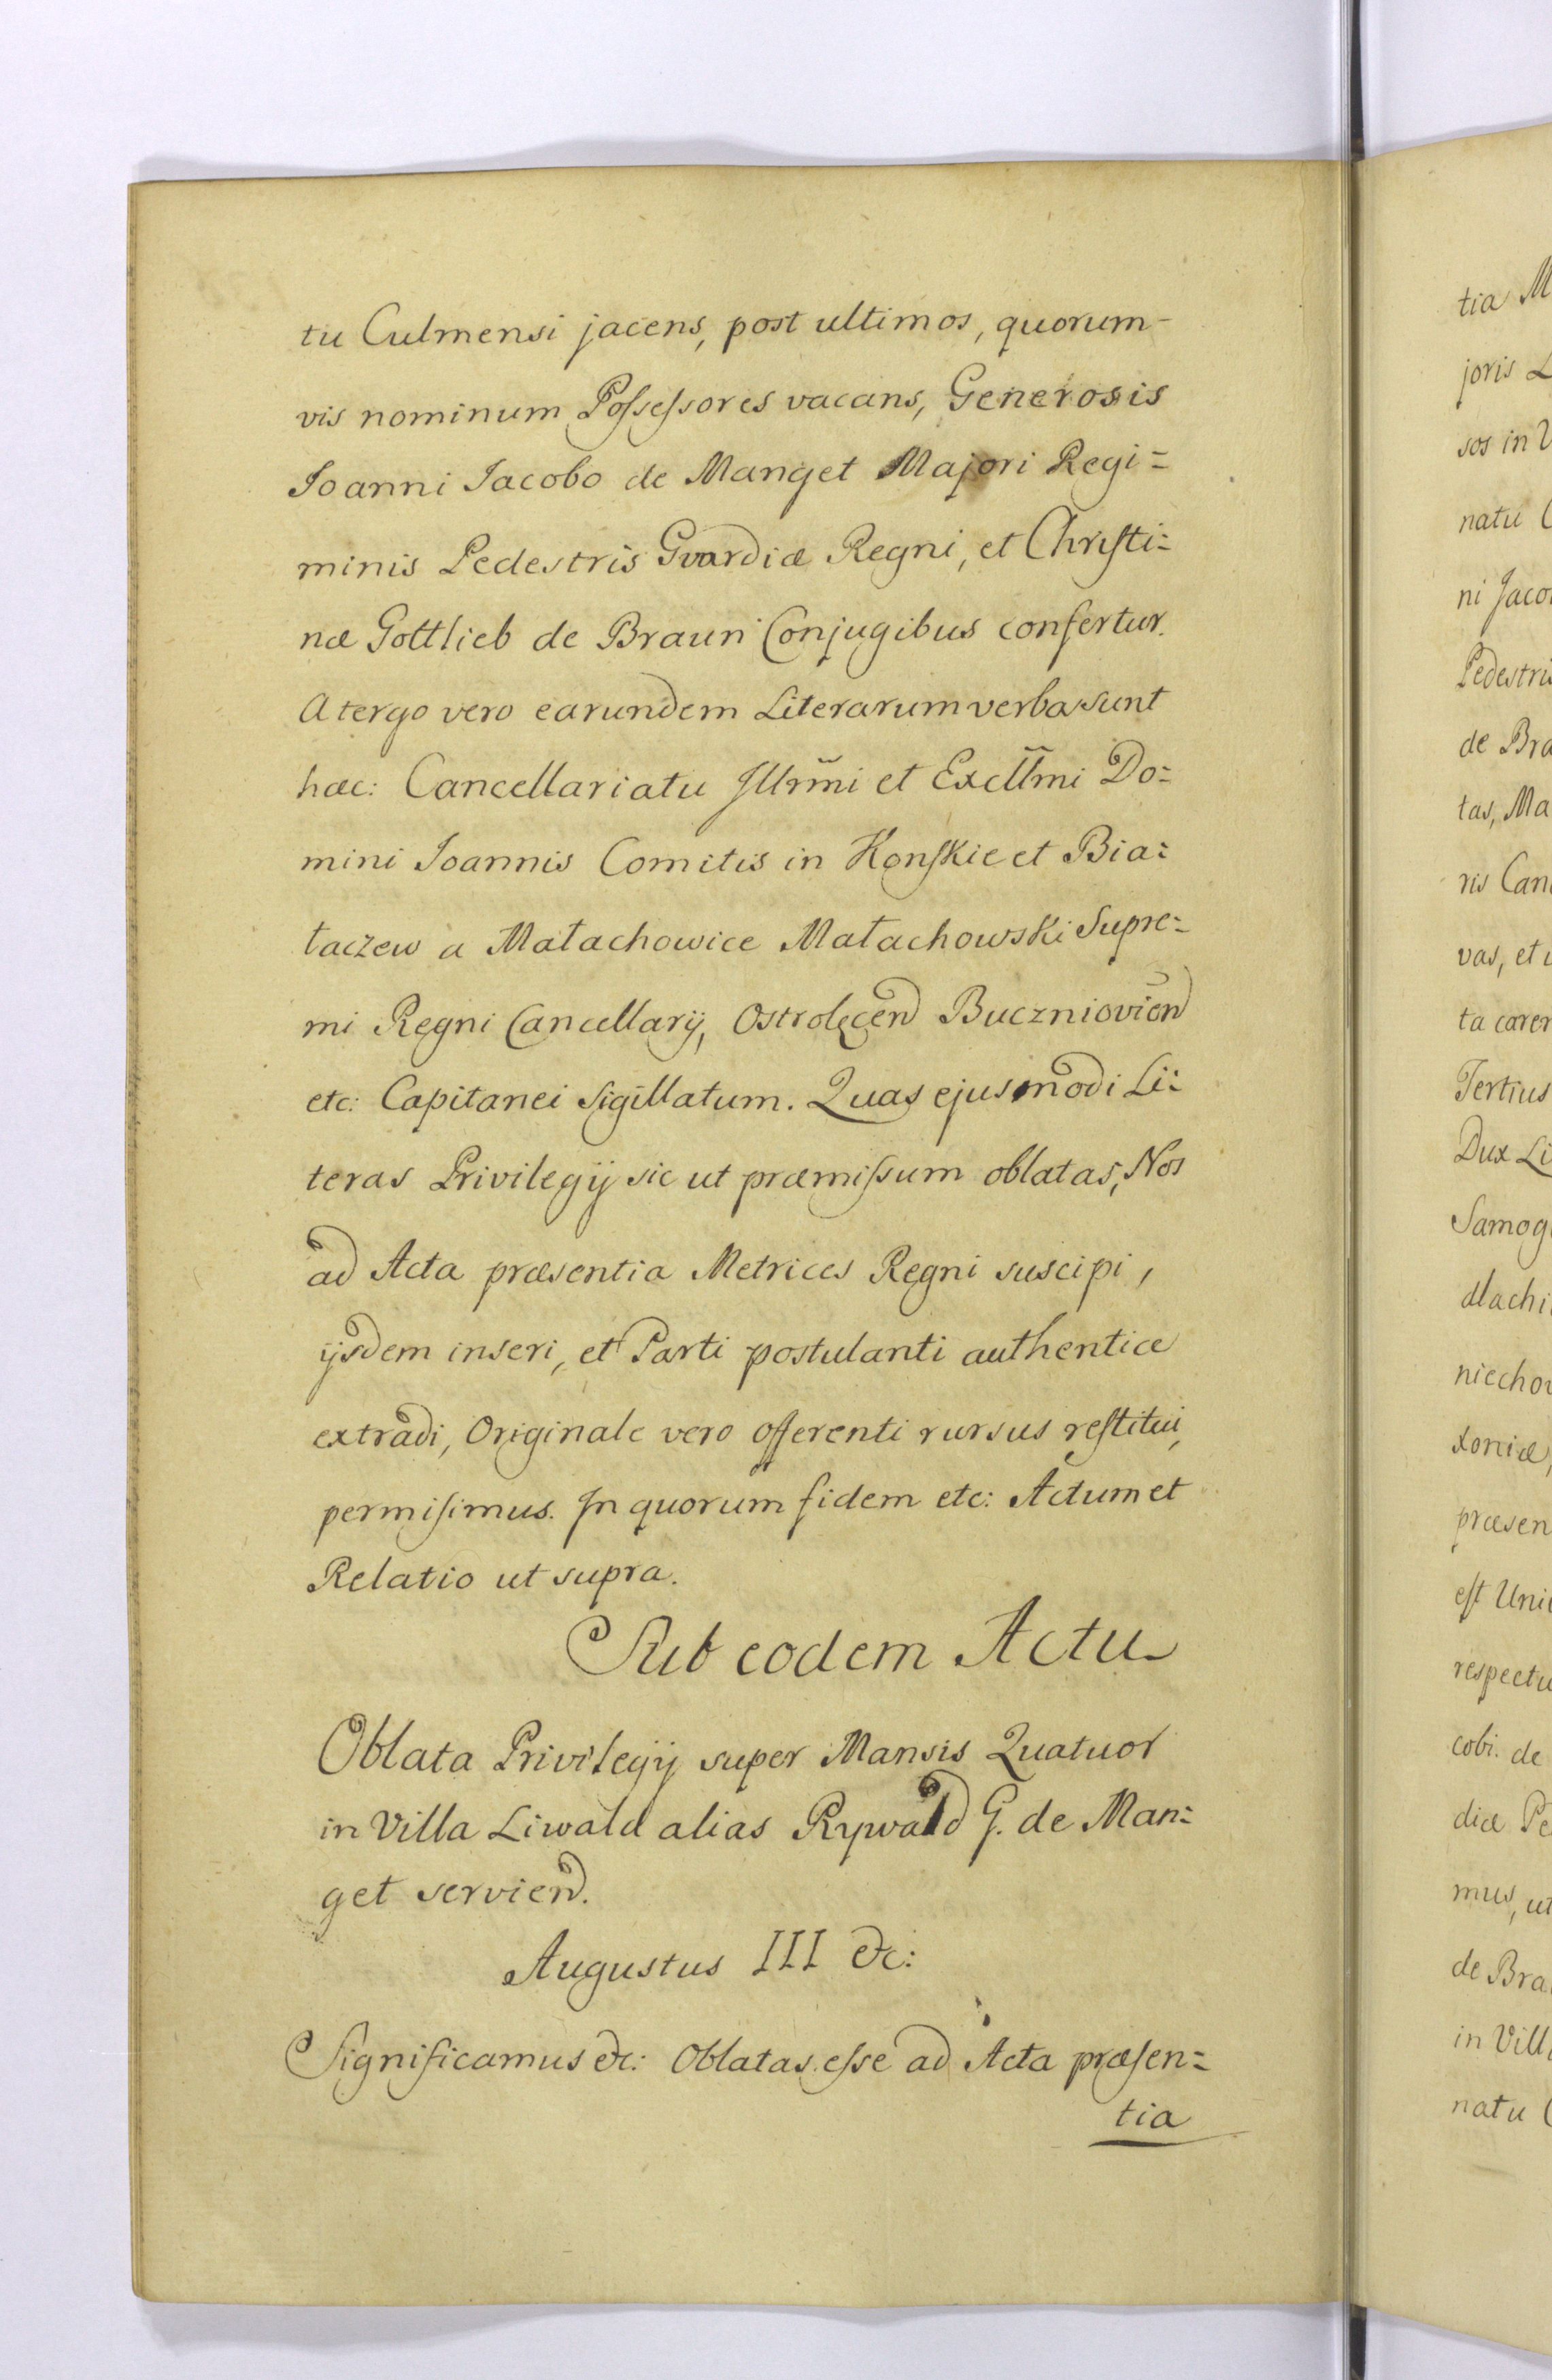 tu Culmensi jacens, post ultimos, quorum-
vis nominum Possessores vacans, Generosis
Joanni Jacobo de Manget Majori Regi=
minis Pedestris Gvardiæ Regni, et Christi=
næ Gottlieb de Braun Conjugibus confertur.
A tergo vero earundem Literarum verba sunt
hæc: Cancellariatu Jllrmi et Excllmi Do=
mini Joannis Comitis in Konskie et Bia=
łaczew a Małachowice Małachowski Supre=
mi Regni Cancellarij, Ostrolęcen Buczniovien
etc: Capitanei Sigillatum. Quas ejusmodi Li=
teras Privilegij sic ut præmissum oblatas, Nos
ad Acta præsentia Metrices Regni suscipi,
ijsdem inseri, et Parti postulanti authentice
extradi, Originale vero offerenti rursus restitui,
permisimus. Jn quorum fidem etc: Actum et
Relatio ut supra.
Sub eodem Actu
Oblata Privilegij super Mansis Quatuor
in Villa Liwald alias Rywald G. de Man=
get serviend.
Augustus III &c:
Significamus &c: Oblatas esse ad Acta præsen=
tia
tia M
joris L
sos in V
natu C
ni Jaco
Pedestri
de Bra
tas, Ma
ris Can
vas, et
ta caren
Tertius
Dux Li
Samog
dlachi
niechov
xoniæ,
præsen
est Uni
respectu
cobi de
diæ Pe
mus, ut
de Bra
in Vill
natu C